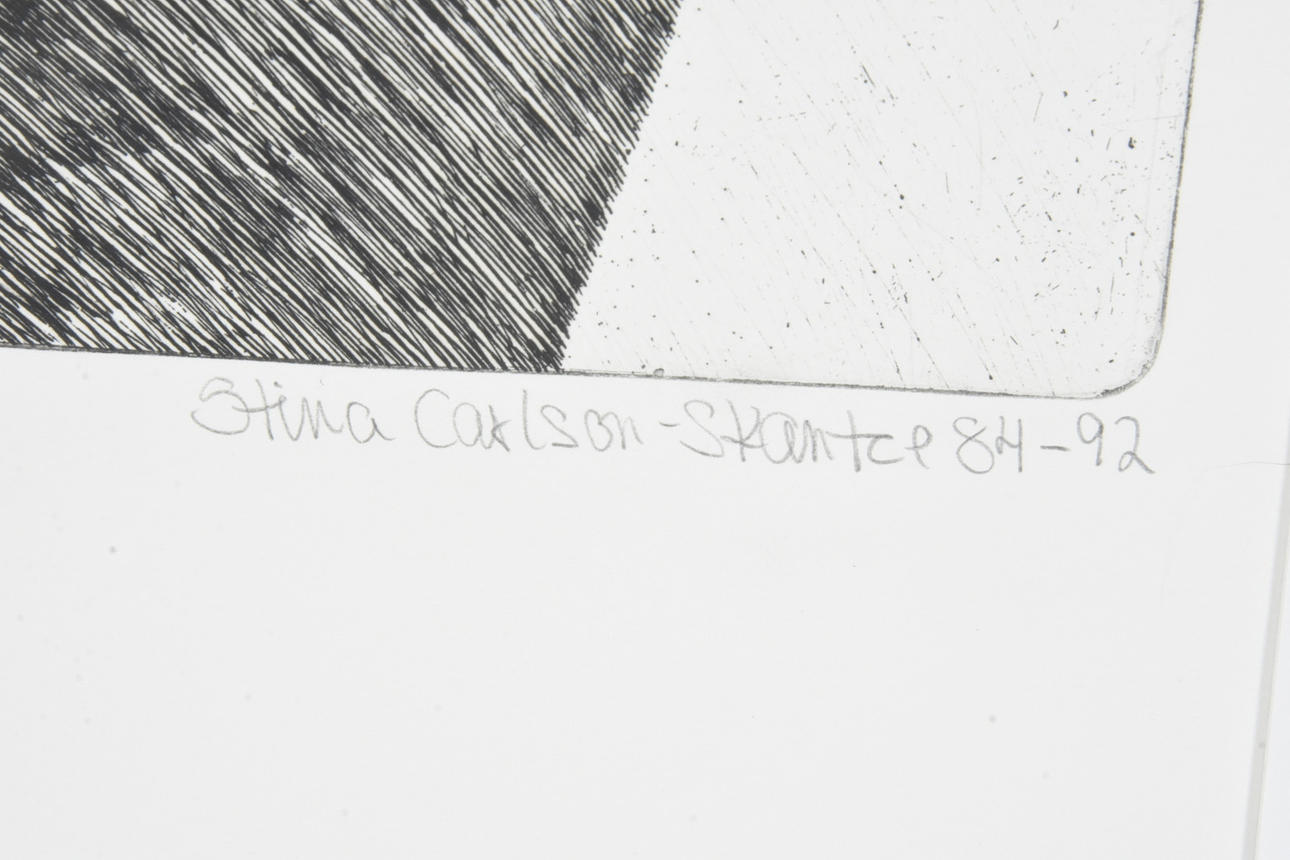 Stina Carlson-Skantze 84-92